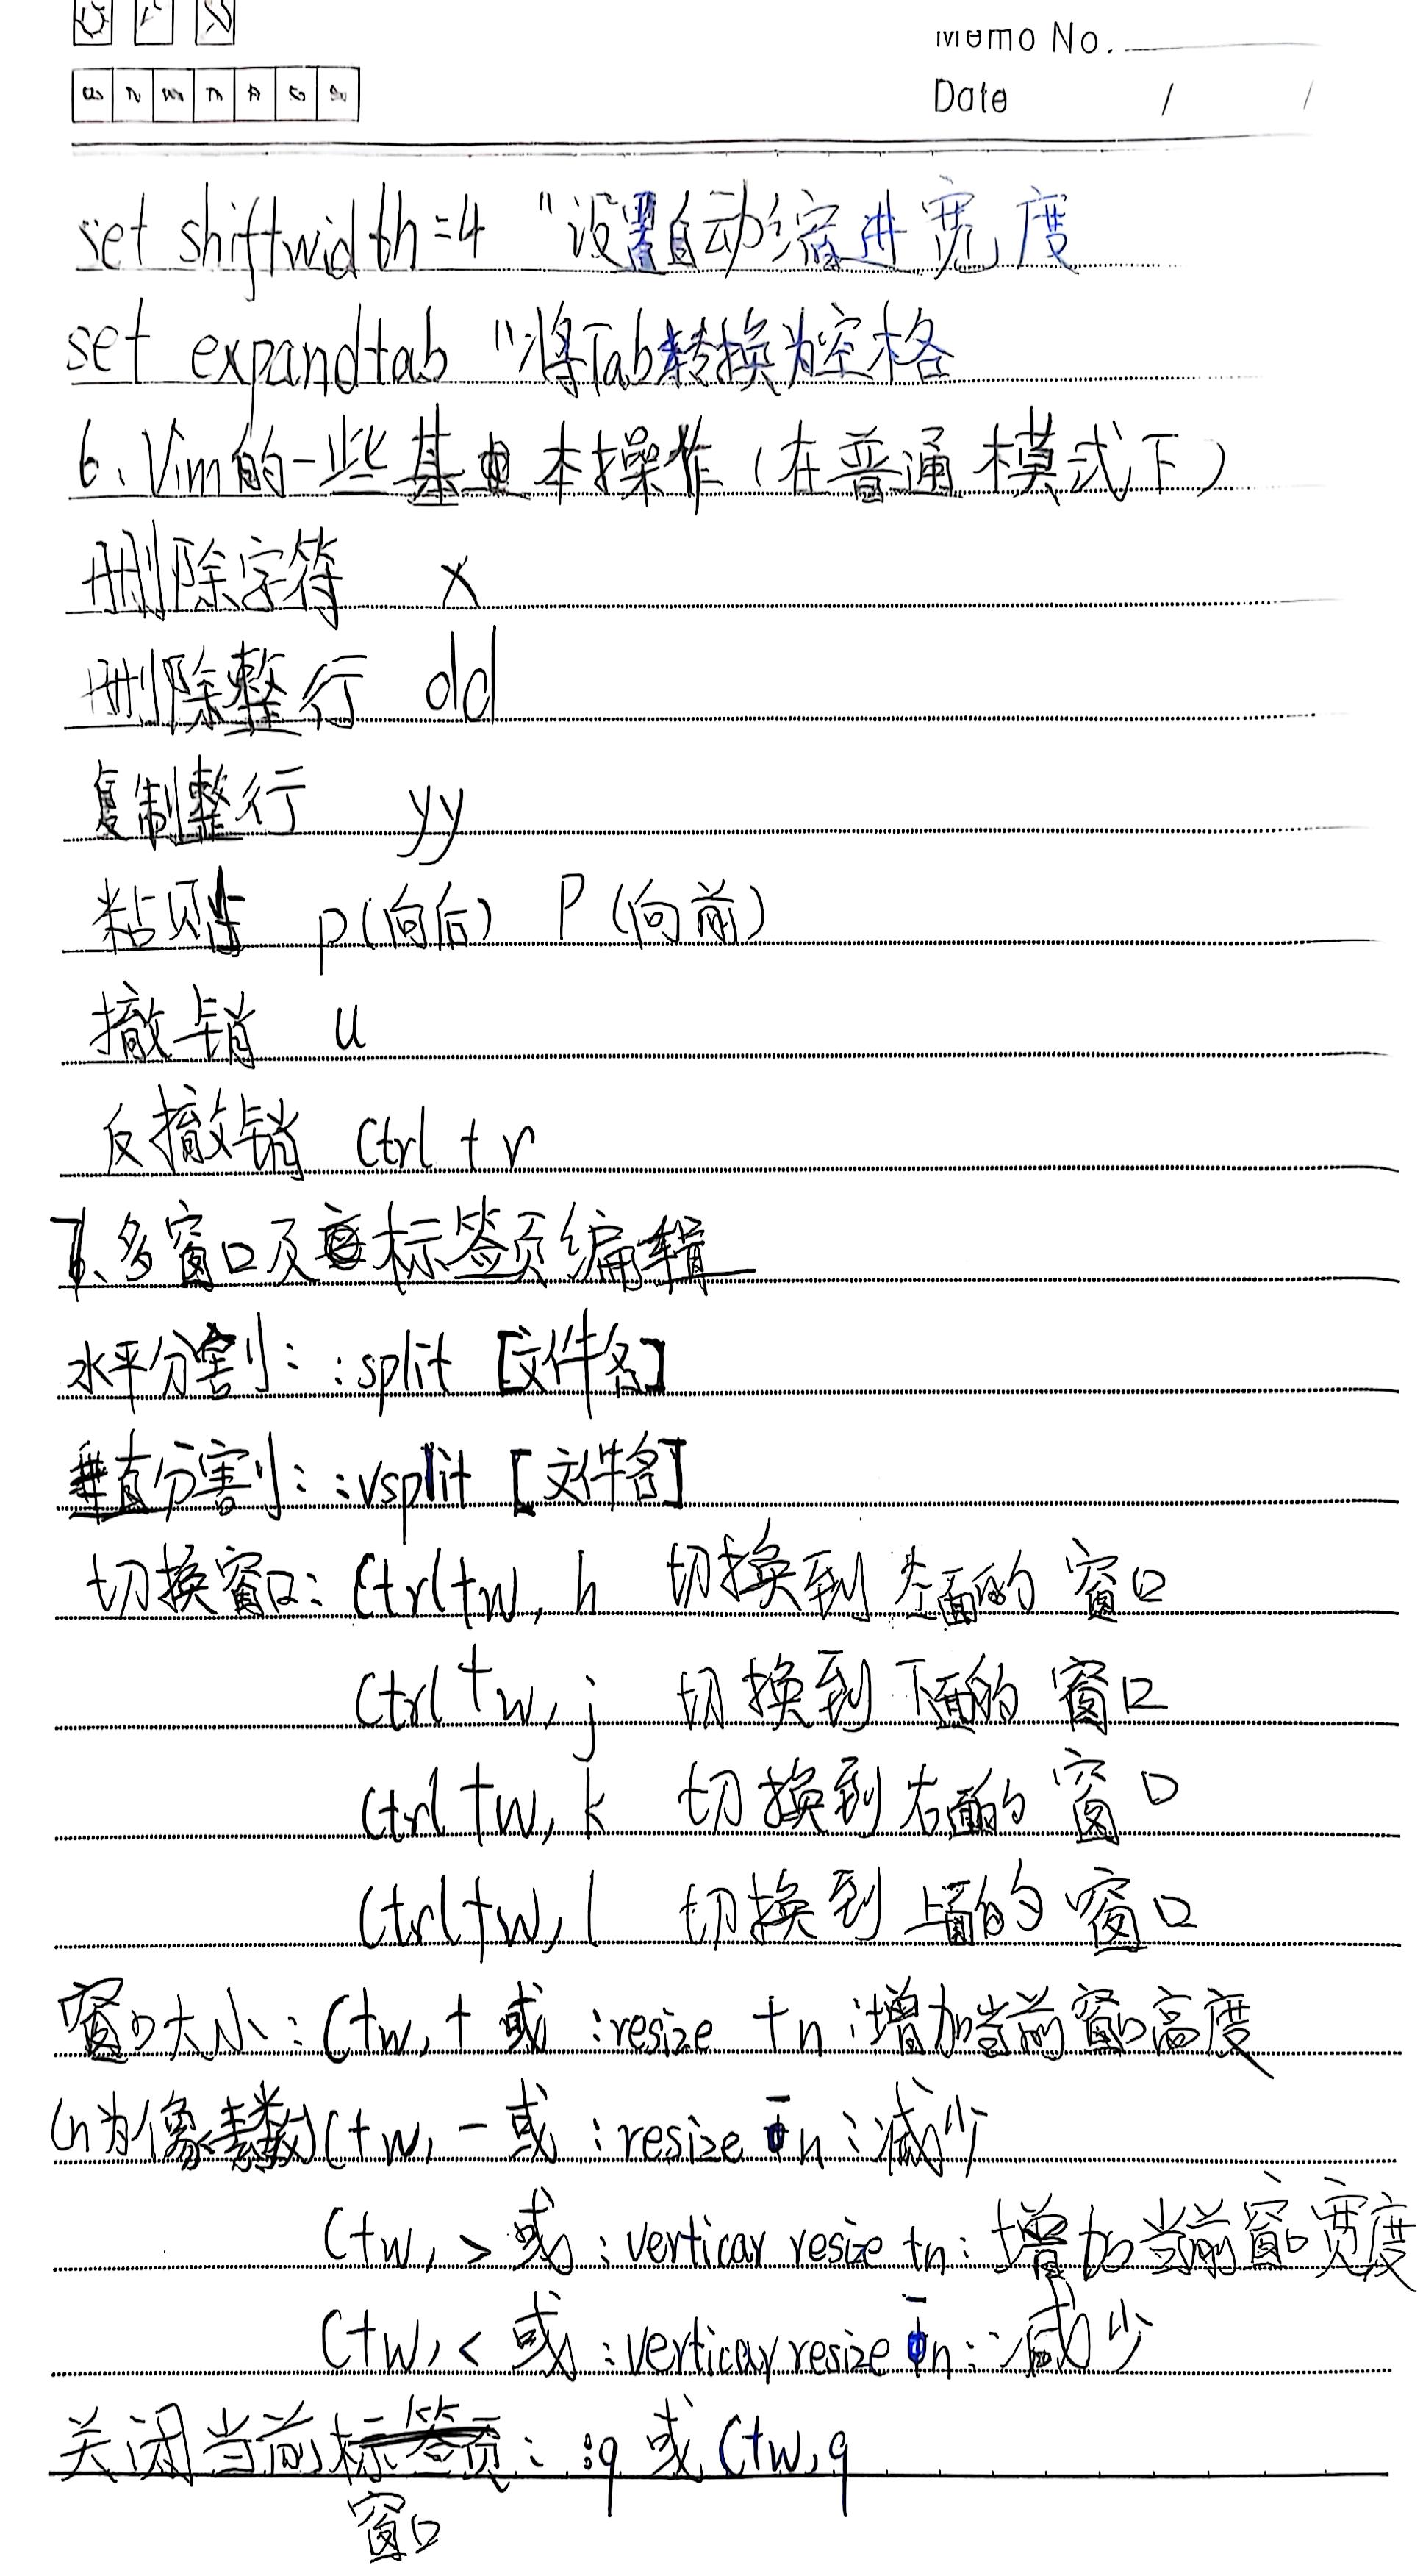 Memo No.
Date / /
set shiftwidth=4 "设置自动缩进宽度
set expandtab "将Tab转换为空格
6、Vim的一些基本操作（在普通模式下）
删除字符 x
删除整行 dd
复制整行 yy
粘贴 p(向后) P(向前)
撤销 u
反撤销 Ctrl+r
7、多窗口及标签页编辑
水平分割：:split [文件名]
垂直分割：:vsplit [文件名]
切换窗口：Ctrl+w, h 切换到左面的窗口
Ctrl+w, j 切换到下面的窗口
Ctrl+w, k 切换到右面的窗口
Ctrl+w, l 切换到上面的窗口
窗口大小：C+w, + 或 :resize +n：增加当前窗口高度
(n为像素数) C+w, - 或 :resize -n：减少
C+w, > 或 :vertical resize +n：增加当前窗口宽度
C+w, < 或 :vertical resize -n：减少
关闭当前标签页：:q 或 C+w, q
窗口